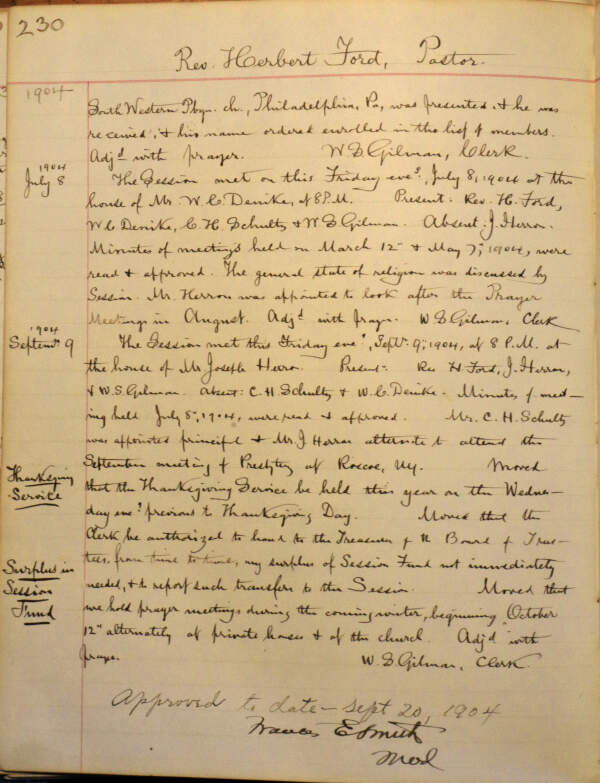 230
Rev. Herbert Ford, Pastor.
1904
South Western Pbyn. ch., Philadelphia, Pa, was presented, & he was
received, & his name ordered enrolled in the list of members.
Adjd with prayer. W S Gilman, Clerk.
1904
July 8
The Session met on this Friday eve, July 8, 1904 at the
house of Mr. W. C. Denike, at 8 P.M. Present: Rev. H. Ford,
W C Denike, C. H. Schultz & W S Gilman. Absent: J. Herron.
Minutes of meetings held on March 12 & May 7, 1904, were
read & approved. The general state of religion was discussed by
Session. Mr. Herron was appointed to look after the Prayer
Meetings in August. Adjd with prayer. W S Gilman, Clerk
1904
Septemr 9
The Session met this Friday eve, Septr 9, 1904, at 8 P.M. at
the house of Mr Joseph Herron. Present: Rev H. Ford, J. Herron,
& W. S. Gilman. Absent: C. H. Schultz & W. C. Denike. Minutes of meet-
ing held July 8, 1904, were read & approved. Mr. C. H. Schultz
was appointed principal & Mr J Herron alternate to attend the
September meeting of Presbytery at Roscoe, N.Y. Moved
Thanksgiving
Service
that the Thanksgiving Service be held this year on the Wednes-
day eve previous to Thanksgiving Day. Moved that the
Clerk be authorized to hand to the Treasurer of the Board of Trus-
Surplus in
Session
Fund
tees, from time to time, any surplus of Session Fund not immediately
needed, & to report such transfers to the Session. Moved that
we hold prayer meetings during the coming winter, beginning October
12 alternately at private houses & at the church. Adjd with
prayer. W. S Gilman, Clerk
Approved to date - Sept 20, 1904
Frances E Smith
Mod